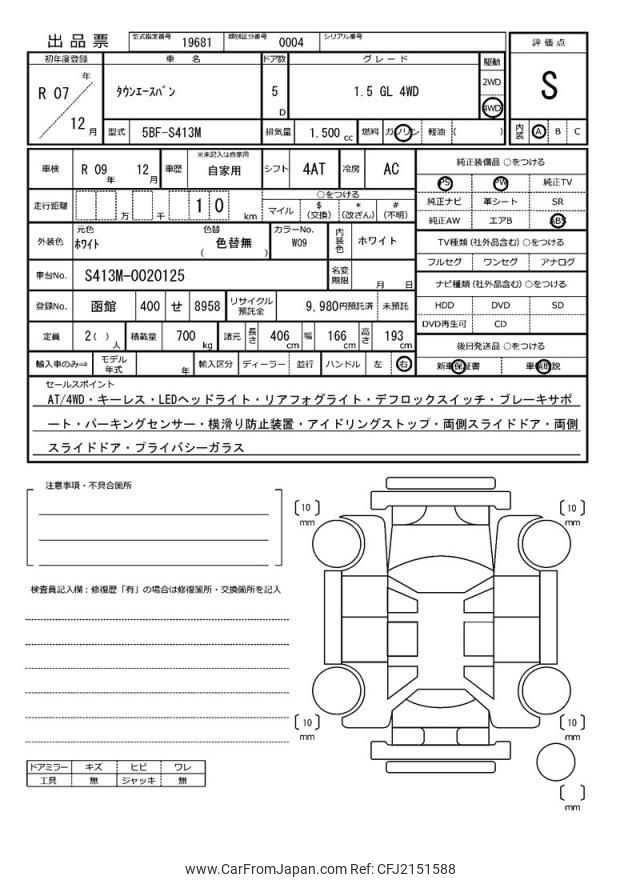 出品票
型式指定番号 19681 類別区分番号 0004 シリアル番号
評価点
S
初年度登録 車 名 ドア数 グレード 駆動
R 07 年 12 月
タウンエースバン 5 D 1.5 GL 4WD
2WD
4WD
型式 5BF-S413M 排気量 1.500 cc 燃料 ガソリン 軽油 ( )
内装 A B C
車検 R 09 年 12 月 車歴 ※未記入は自家用 自家用 シフト 4AT 冷房 AC
走行距離 万 千 1 0 km
○をつける
マイル $(交換) *(改ざん) #(不明)
外装色 元色 ホワイト 色替 色替無 ( ) カラーNo. W09 内装色 ホワイト
車台No. S413M-0020125 名変期限 月 日
登録No. 函館 400 せ 8958 リサイクル預託金 9,980円預託済 未預託
定員 2( )人 積載量 700 kg 諸元 長さ 406 cm 幅 166 cm 高さ 193 cm
輸入車のみ⇨ モデル年式 年 輸入区分 ディーラー 並行 ハンドル 左 右
純正装備品 ○をつける
PS PW 純正TV
純正ナビ 革シート SR
純正AW エアB ABS
TV種類 (社外品含む) ○をつける
フルセグ ワンセグ アナログ
ナビ種類 (社外品含む) ○をつける
HDD DVD SD
DVD再生可 CD
後日発送品 ○をつける
新車保証書 車輌取説
セールスポイント
AT/4WD・キーレス・LEDヘッドライト・リアフォグライト・デフロックスイッチ・ブレーキサポ
ート・パーキングセンサー・横滑り防止装置・アイドリングストップ・両側スライドドア・両側
スライドドア・プライバシーガラス
注意事項・不具合箇所
検査員記入欄：修復歴「有」の場合は修復箇所・交換箇所を記入
ドアミラー キズ ヒビ ワレ
工具 無 ジャッキ 無
[10] mm
[10] mm
[10] mm
[10] mm
[ ] mm
www.CarFromJapan.com Ref: CFJ2151588